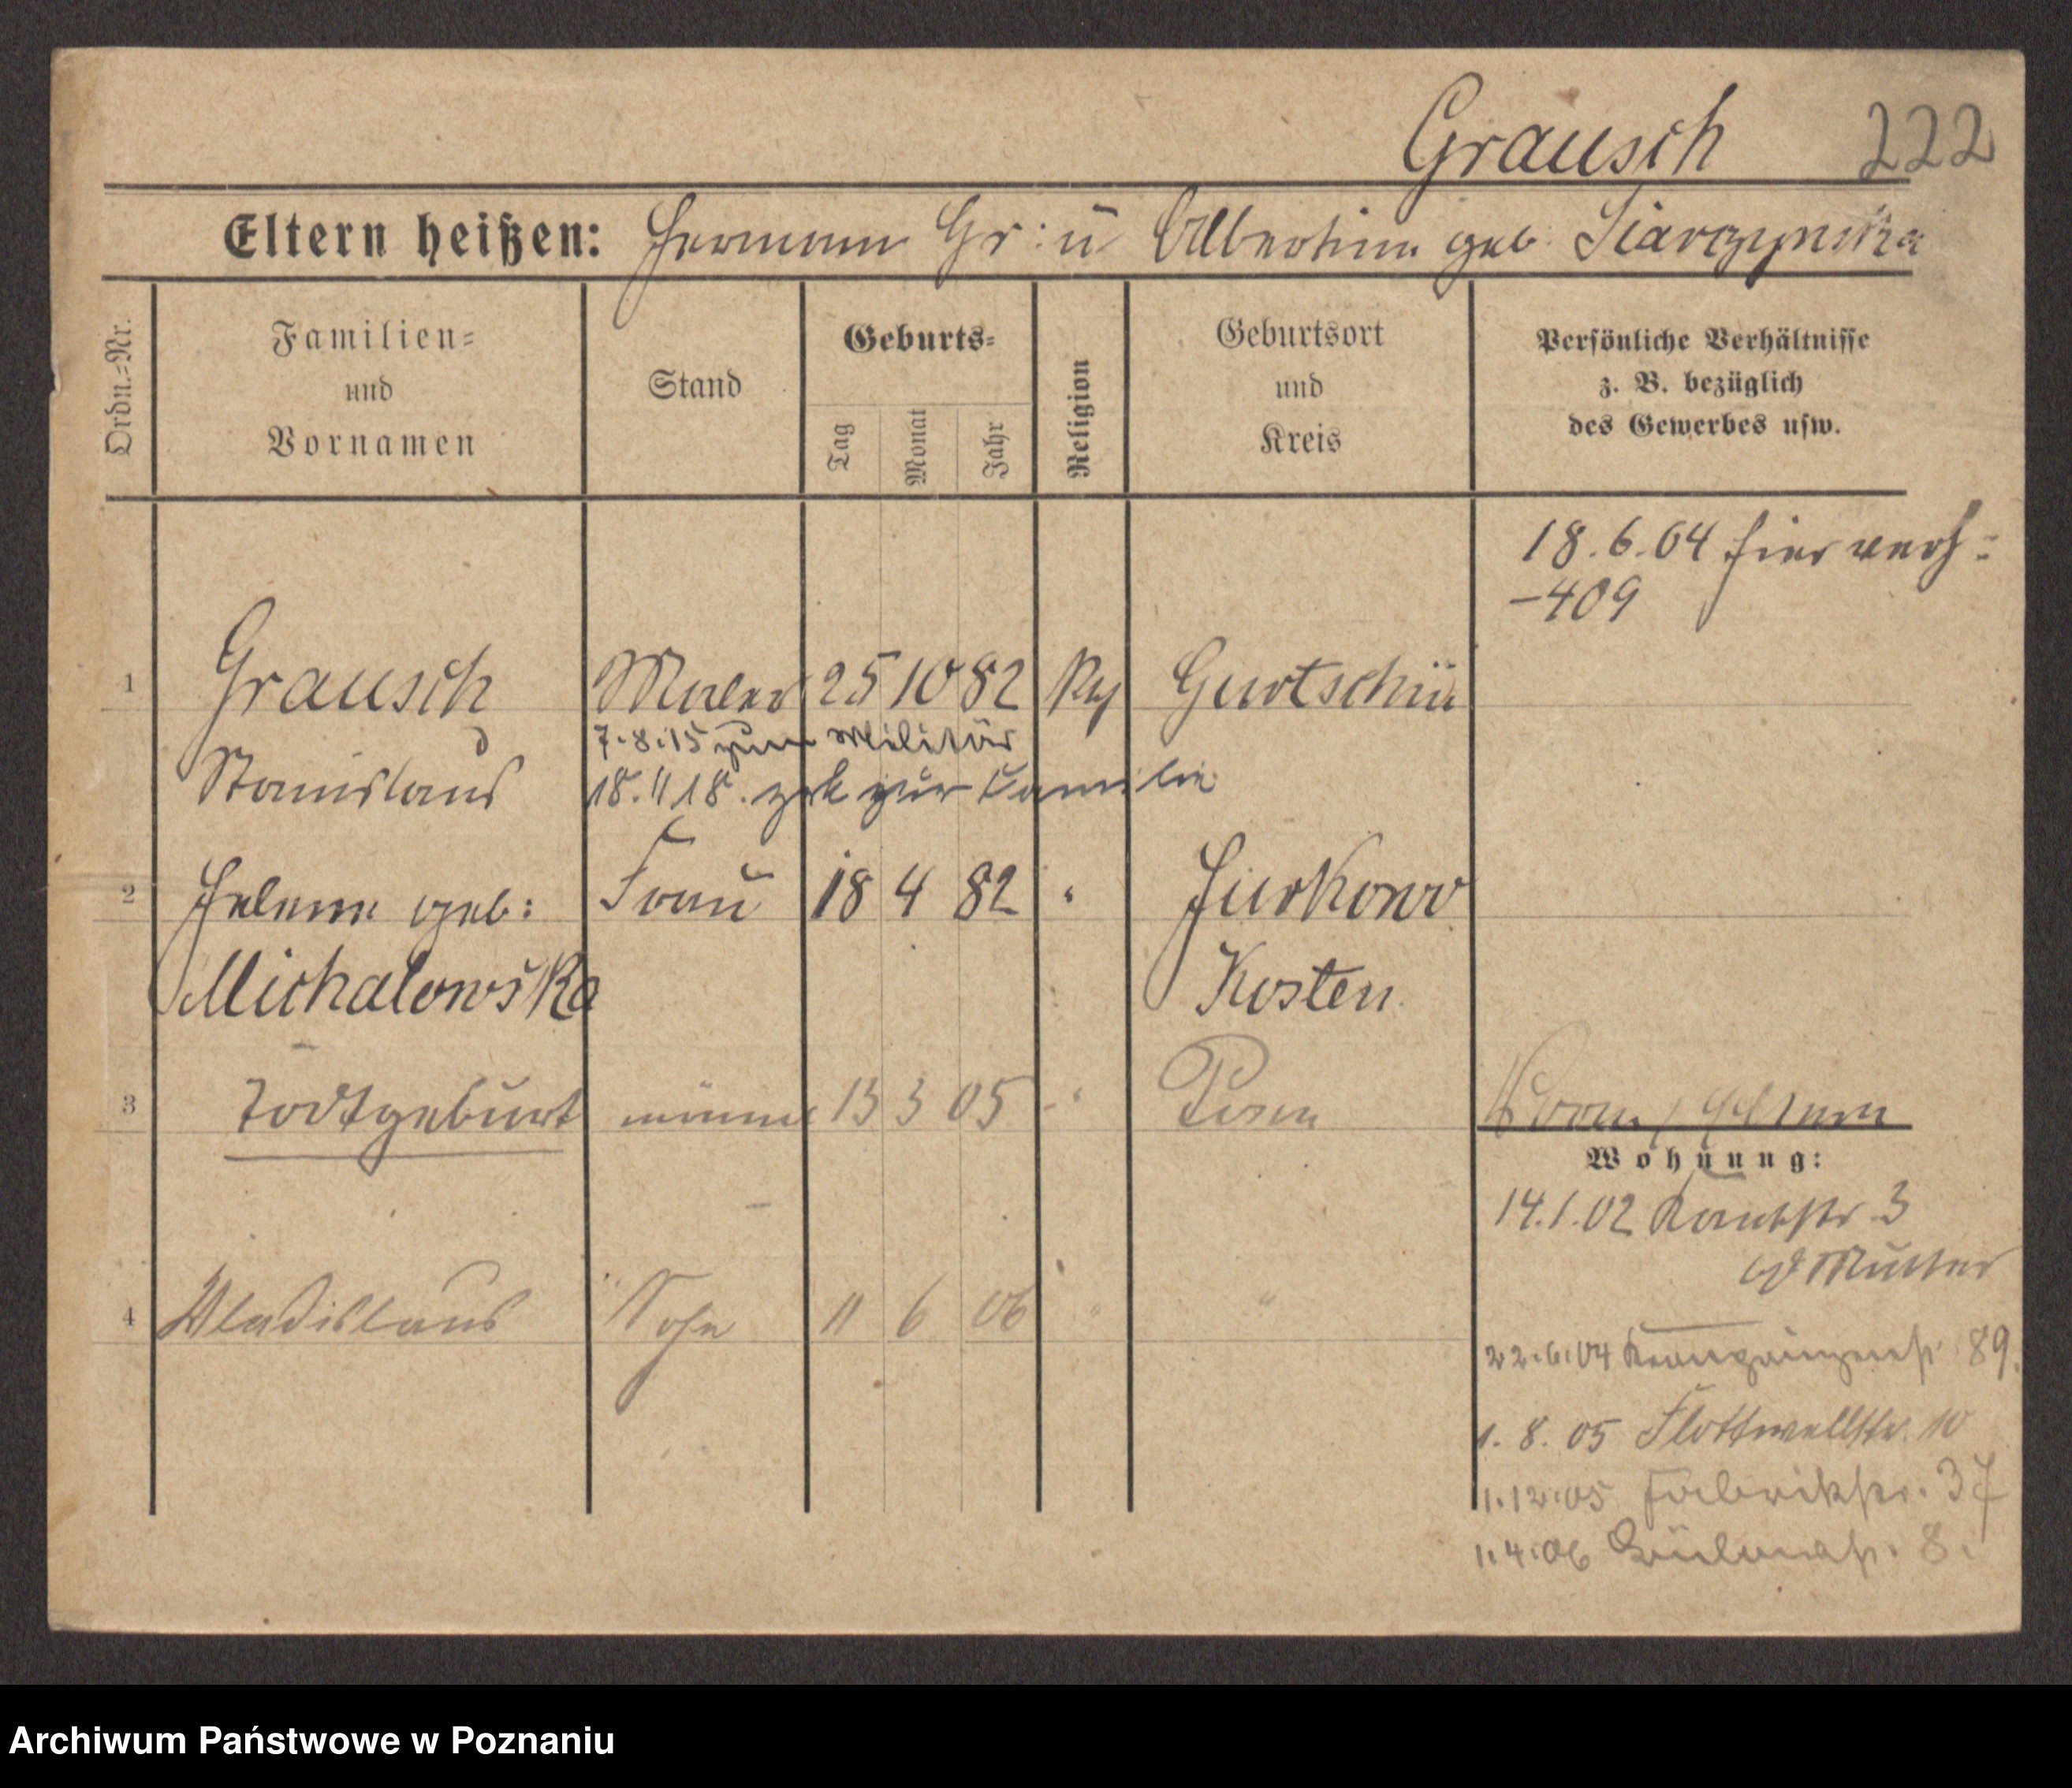 Grausch 222
Eltern heißen: Hermann Gr: u Albertine geb. Siarczynska
Ordn.-Nr.
Familien- und Vornamen
Stand
Geburts-
Tag Monat Jahr
Religion
Geburtsort und Kreis
Persönliche Verhältnisse
z. B. bezüglich
des Gewerbes usw.
18.6.04 hier verh:
-409
1 Grausch Maler 25 10 82 Gurtschin
7.8.15 zum Militär
Stanislaus 18.11.18. zrk zur Familie
2 Helene geb: Frau 18 4 82 " Jurkowo
Michalowska Kosten
3 Todtgeburt männl 13 3 05 " Posen
Wohnung:
14.1.02 3
Mutter
4 Wladislaus Sohn 11 6 06 " "
22.6.04 89.
1. 8. 05 Flottwellstr. 10
1.12.05 Fabrikstr. 37
1.4.06 8.
Archiwum Państwowe w Poznaniu